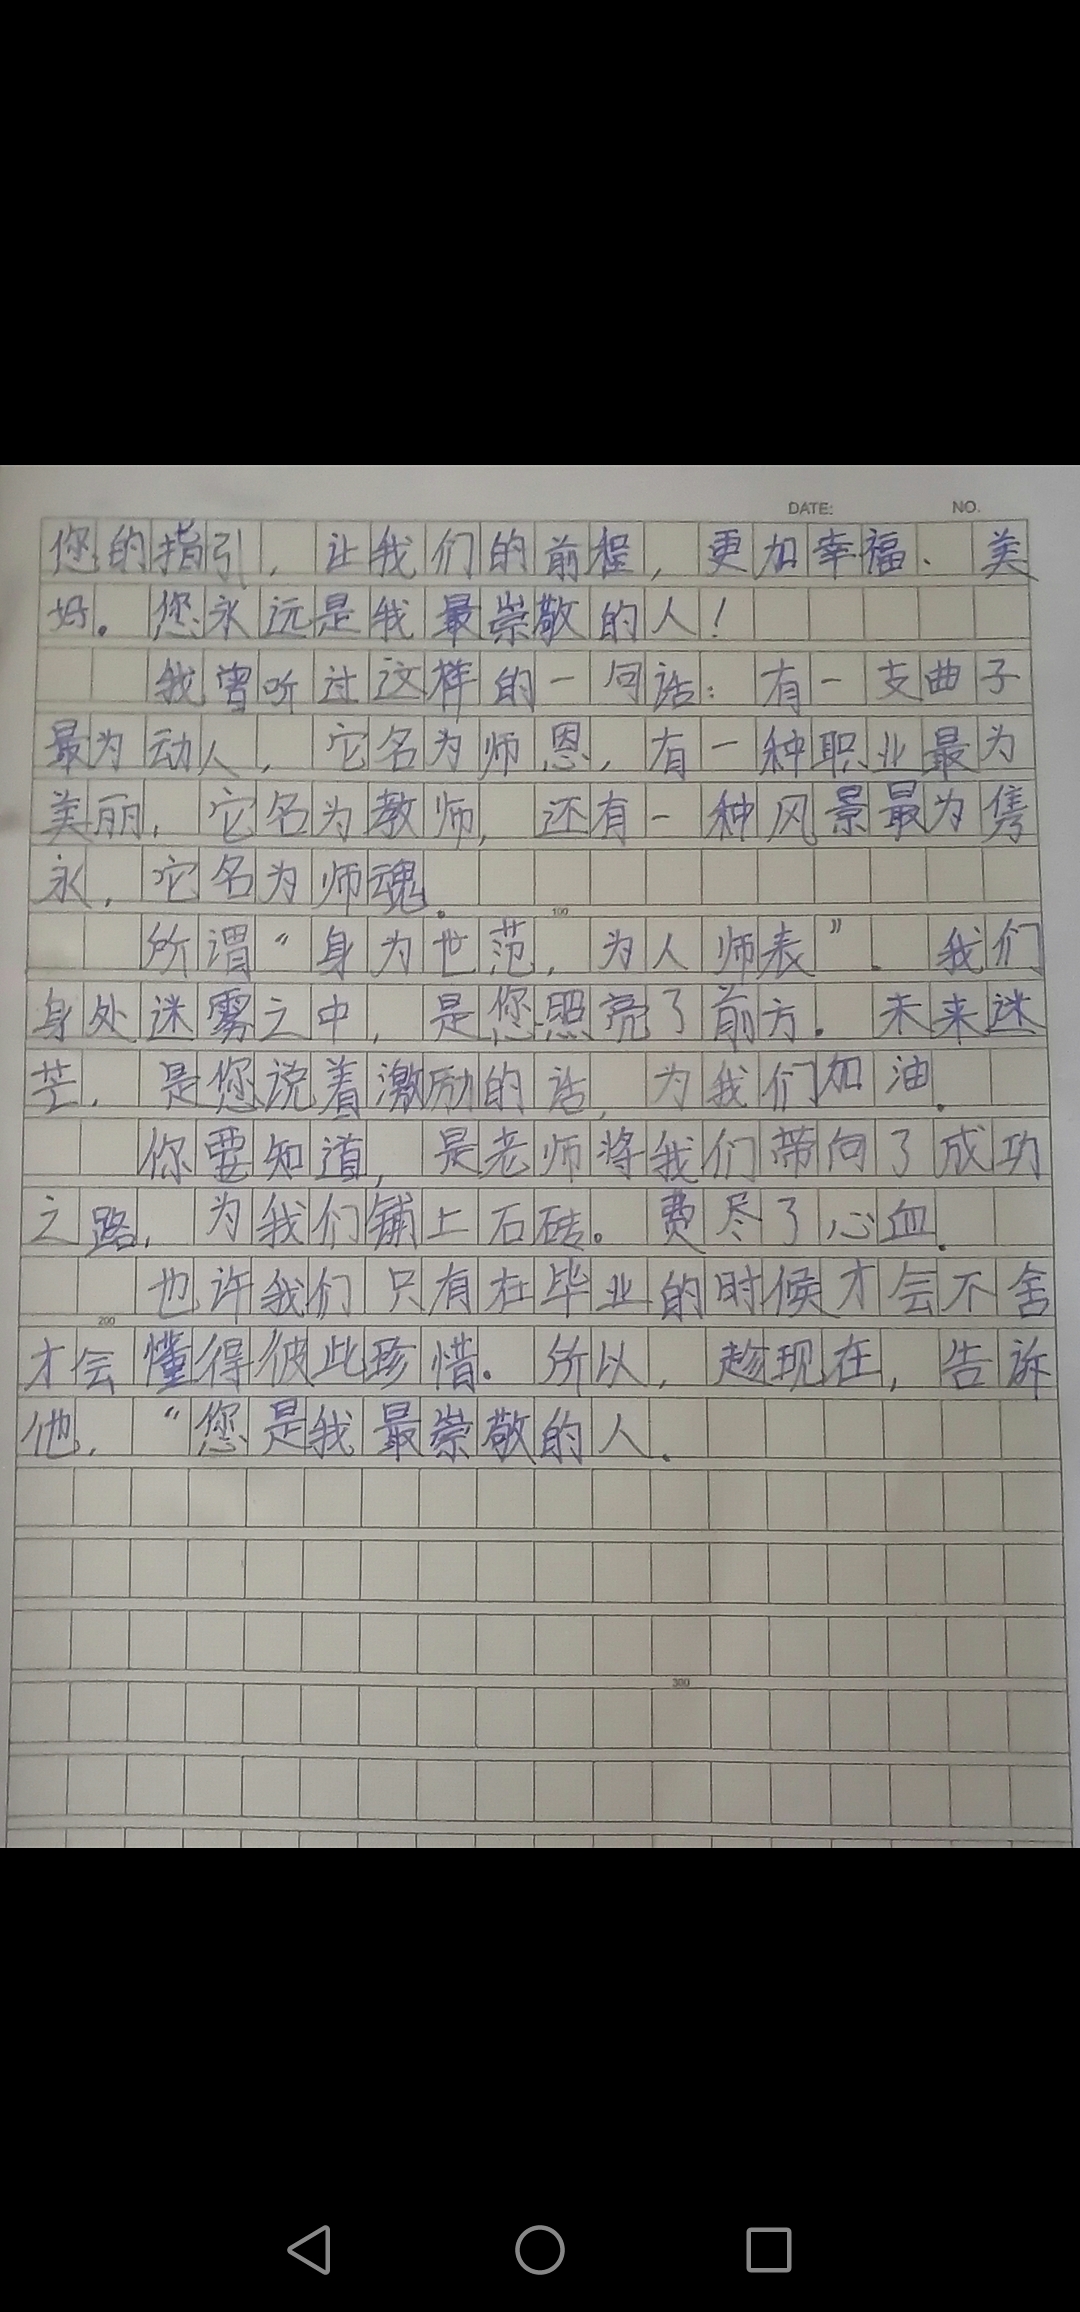 DATE: NO.
您的指引，让我们的前程，更加幸福、美
好。您永远是我最崇敬的人！
我曾听过这样的一句话：有一支曲子
最为动人，它名为师恩，有一种职业最为
美丽，它名为教师，还有一种风景最为隽
永，它名为师魂。
100
所谓“身为世范，为人师表”。我们
身处迷雾之中，是您照亮了前方。未来迷
芒，是您说着激励的话，为我们加油。
你要知道，是老师将我们带向了成功
之路，为我们铺上石砖。费尽了心血。
也许我们只有在毕业的时候才会不舍
200
才会懂得彼此珍惜。所以，趁现在，告诉
他，“您是我最崇敬的人。
300